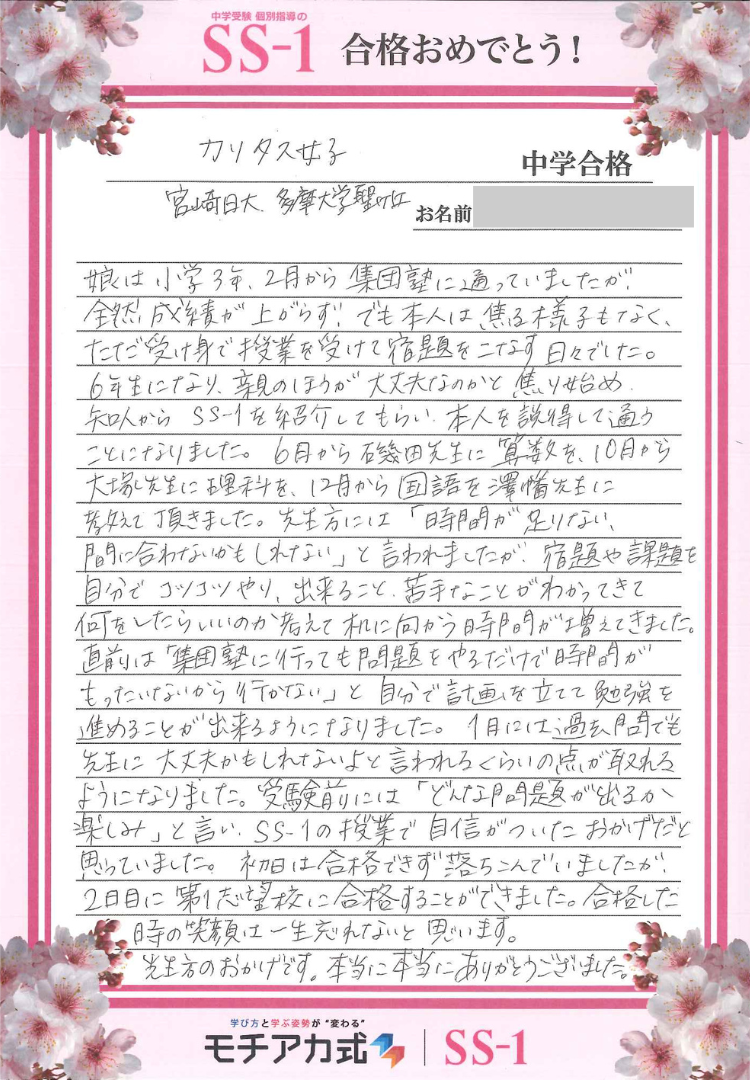 中学受験 個別指導の
SS-1 合格おめでとう!
カリタス女子 中学合格
宮崎日大、多摩大学聖ヶ丘
お名前
娘は小学3年、2月から集団塾に通っていましたが、
全然成績が上がらず、でも本人は焦る様子もなく、
ただ受け身で授業を受けて宿題をこなす日々でした。
6年生になり、親のほうが大丈夫なのかと焦り始め
知人からSS-1を紹介してもらい、本人を説得して通う
ことになりました。6月から磯田先生に算数を、10月から
大塚先生に理科を、12月から国語を澤幡先生に
教えて頂きました。先生方には「時間が足りない、
間に合わないかもしれない」と言われましたが、宿題や課題を
自分でコツコツやり、出来ること、苦手なことがわかってきて
何をしたらいいのか考えて机に向かう時間が増えてきました。
直前は「集団塾に行っても問題をやるだけで時間が
もったいないから行かない」と自分で計画を立てて勉強を
進めることが出来るようになりました。1月には過去問でも
先生に大丈夫かもしれないよと言われるくらいの点が取れる
ようになりました。受験前には「どんな問題が出るか
楽しみ」と言い、SS-1の授業で自信がついたおかげだと
思っていました。初日は合格できず落ちこんでいましたが、
2日目に第1志望校に合格することができました。合格した
時の笑顔は一生忘れないと思います。
先生方のおかげです。本当に本当にありがとうございました。
学び方と学ぶ姿勢が"変わる"
モチアカ式 SS-1